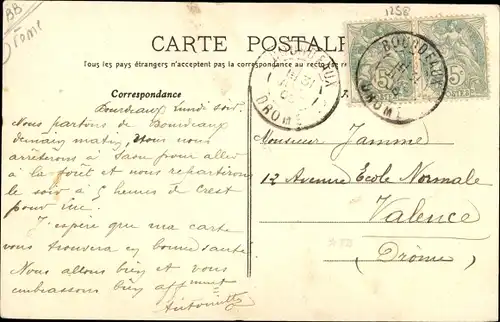 BB
1258
CARTE POSTALE
Tous les pays étrangers n'acceptent pas la correspondance au recto
Correspondance
BOURDEAUX
DROME
BOURDEAUX
DROME
5
5
Bourdeaux Lundi soir
Nous partons de Bourdeaux
demain matin, nous nous
arrêterons à Saou pour aller
à la forêt et nous repartirons
le soir à 5 heures de Crest
pour
J'espère que ma carte
vous trouvera en bonne santé
Nous allons bien et vous
embrassons bien affmeust
Antoinette
Monsieur Jamme
12 Avenue Ecole Normale
Valence
(Drôme)